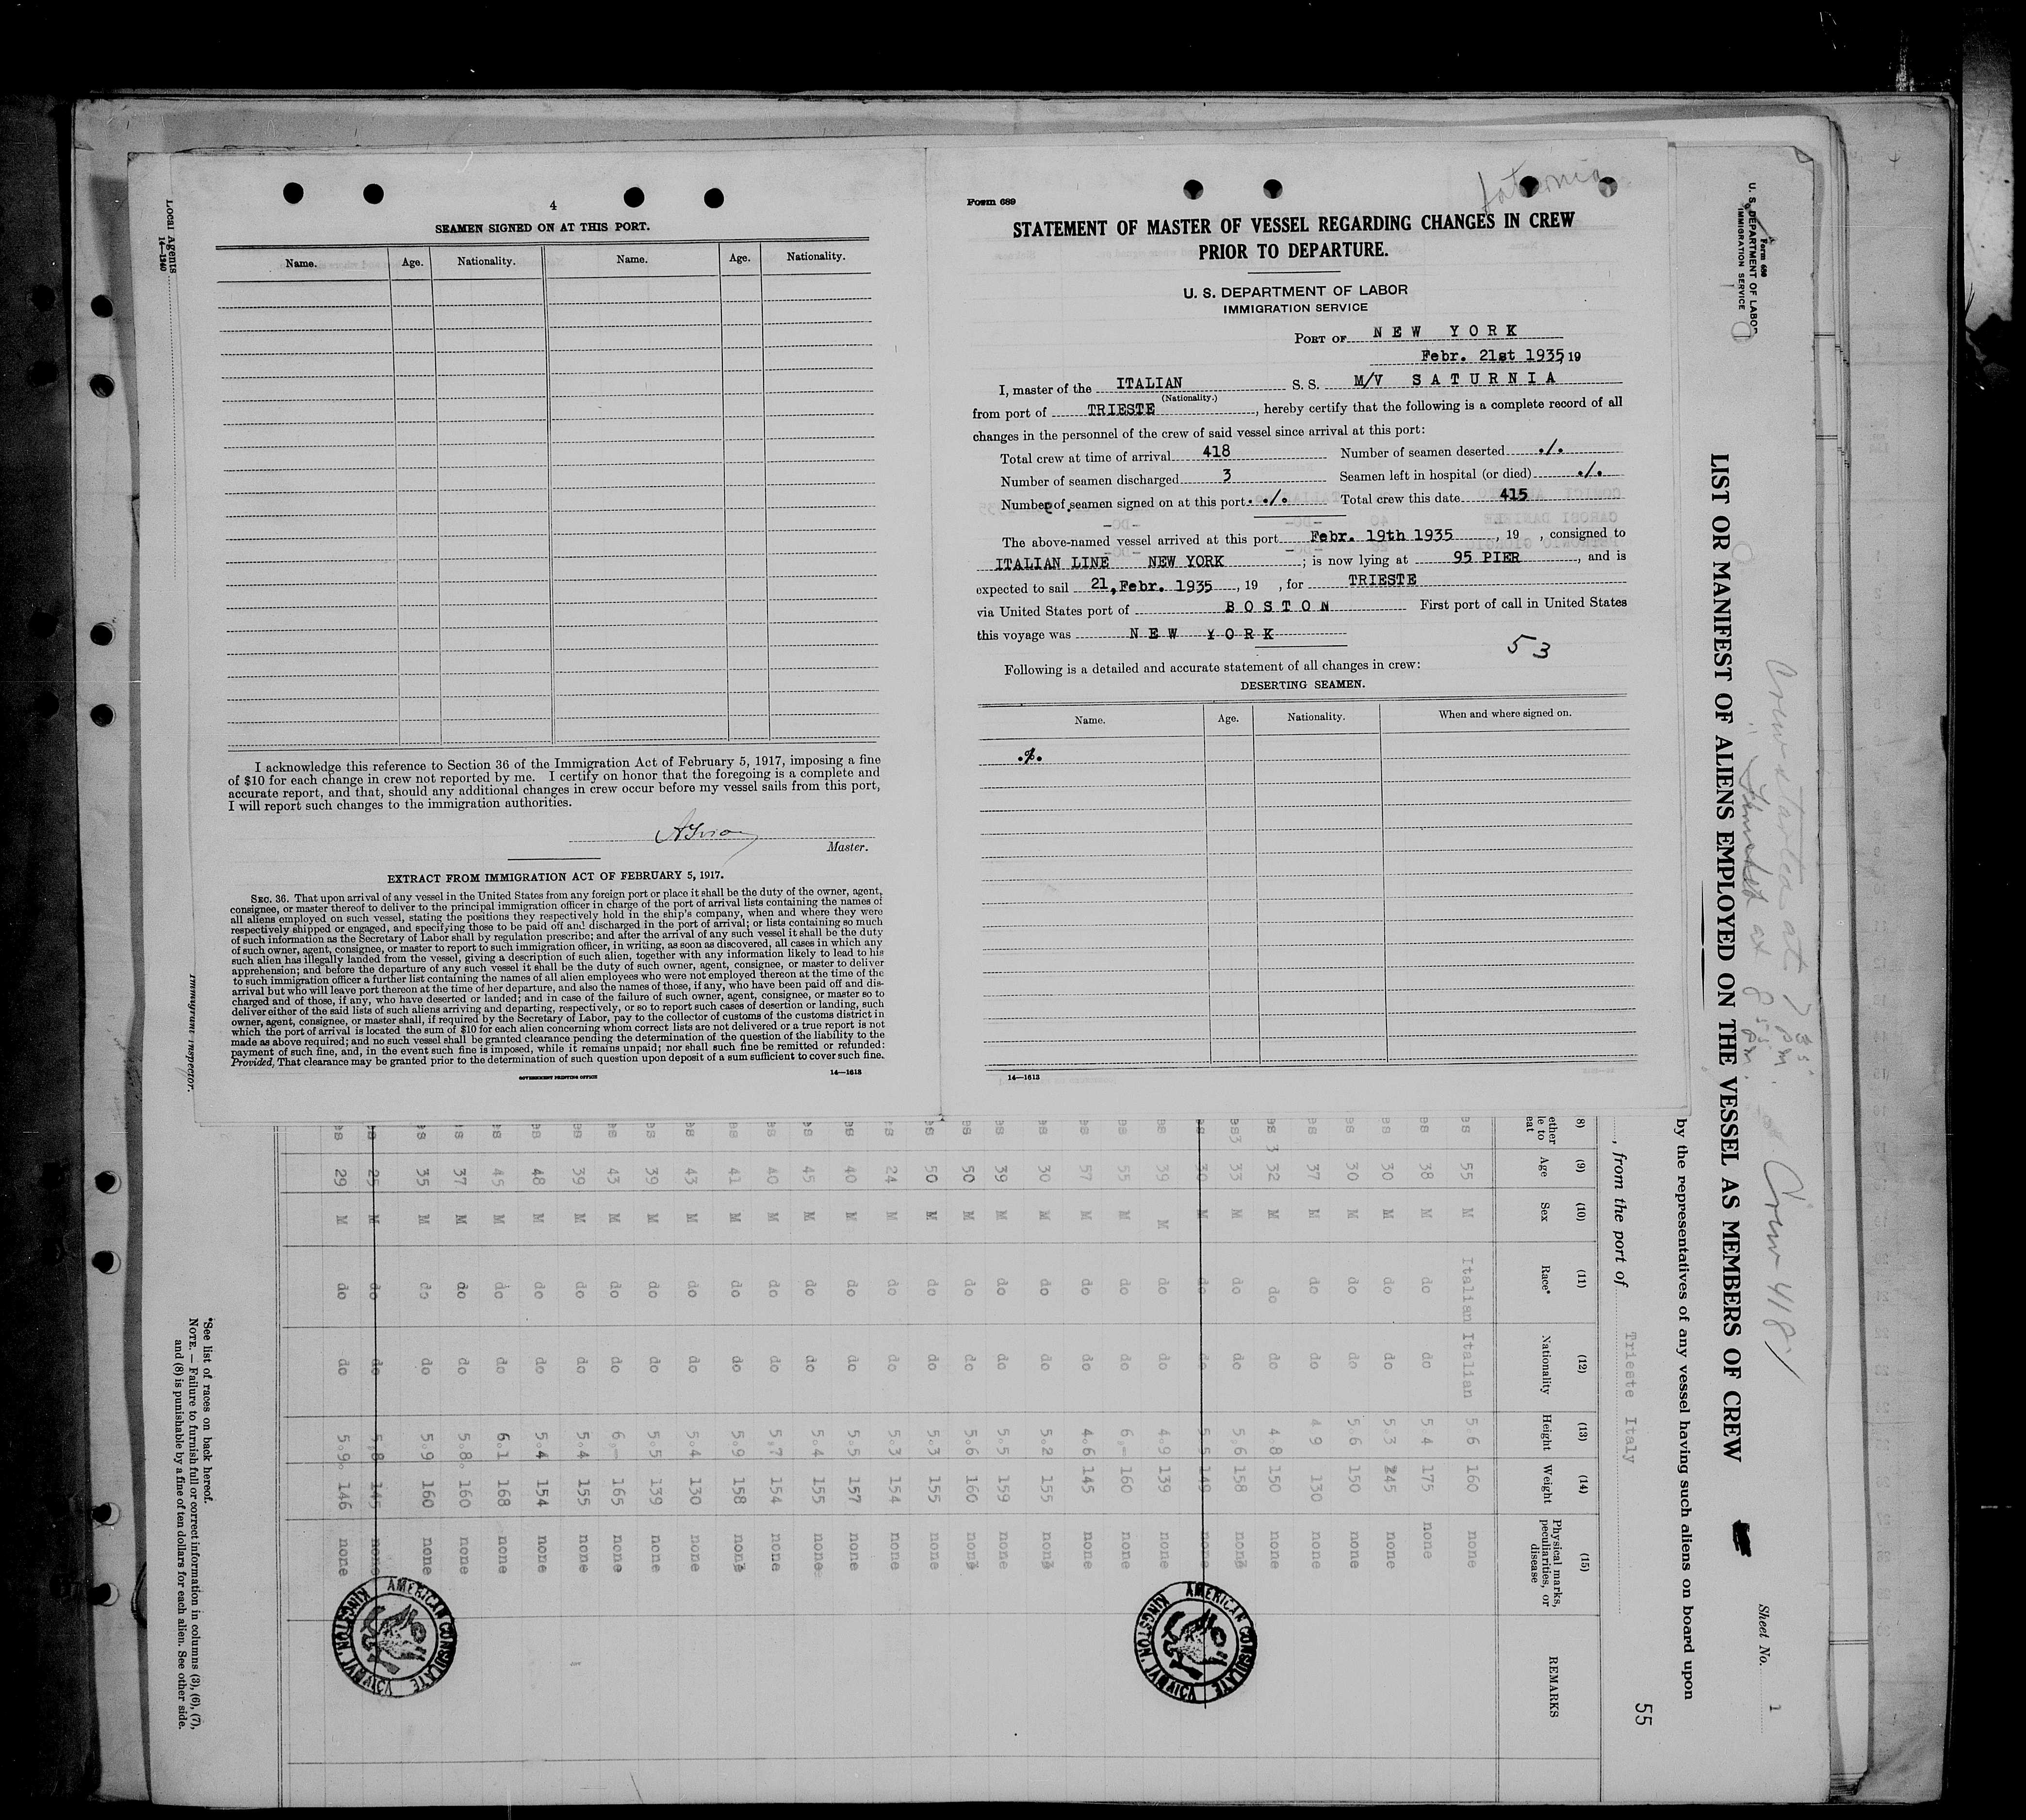 4
SEAMEN SIGNED ON AT THIS PORT.
Name. Age. Nationality. Name. Age. Nationality.
I acknowledge this reference to Section 36 of the Immigration Act of February 5, 1917, imposing a fine
of $10 for each change in crew not reported by me. I certify on honor that the foregoing is a complete and
accurate report, and that, should any additional changes in crew occur before my vessel sails from this port,
I will report such changes to the immigration authorities.
Master.
EXTRACT FROM IMMIGRATION ACT OF FEBRUARY 5, 1917.
SEC. 36. That upon arrival of any vessel in the United States from any foreign port or place it shall be the duty of the owner, agent,
consignee, or master thereof to deliver to the principal immigration officer in charge of the port of arrival lists containing the names of
all aliens employed on such vessel, stating the positions they respectively hold in the ship's company, when and where they were
respectively shipped or engaged, and specifying those to be paid off and discharged in the port of arrival; or lists containing so much
of such information as the Secretary of Labor shall by regulation prescribe; and after the arrival of any such vessel it shall be the duty
of such owner, agent, consignee, or master to report to such immigration officer, in writing, as soon as discovered, all cases in which any
such alien has illegally landed from the vessel, giving a description of such alien, together with any information likely to lead to his
apprehension; and before the departure of any such vessel it shall be the duty of such owner, agent, consignee, or master to deliver
to such immigration officer a further list containing the names of all alien employees who were not employed thereon at the time of the
arrival but who will leave port thereon at the time of her departure, and also the names of those, if any, who have been paid off and dis-
charged and of those, if any, who have deserted or landed; and in case of the failure of such owner, agent, consignee, or master so to
deliver either of the said lists of such aliens arriving and departing, respectively, or so to report such cases of desertion or landing, such
owner, agent, consignee, or master shall, if required by the Secretary of Labor, pay to the collector of customs of the customs district in
which the port of arrival is located the sum of $10 for each alien concerning whom correct lists are not delivered or a true report is not
made as above required; and no such vessel shall be granted clearance pending the determination of the question of the liability to the
payment of such fine, and, in the event such fine is imposed, while it remains unpaid; nor shall such fine be remitted or refunded:
Provided, That clearance may be granted prior to the determination of such question upon deposit of a sum sufficient to cover such fine.
GOVERNMENT PRINTING OFFICE
14—1613
Local Agents
14—1240
Immigrant Inspector.
Saturnia
Form 689
STATEMENT OF MASTER OF VESSEL REGARDING CHANGES IN CREW
PRIOR TO DEPARTURE.
U. S. DEPARTMENT OF LABOR
IMMIGRATION SERVICE
PORT OF NEW YORK
Febr. 21st 1935, 19
I, master of the ITALIAN S. S. M/V SATURNIA
(Nationality.)
from port of TRIESTE, hereby certify that the following is a complete record of all
changes in the personnel of the crew of said vessel since arrival at this port:
Total crew at time of arrival 418 Number of seamen deserted ./.
Number of seamen discharged 3 Seamen left in hospital (or died) ./.
Number of seamen signed on at this port ./. Total crew this date 415
The above-named vessel arrived at this port Febr. 19th 1935, 19 , consigned to
ITALIAN LINE NEW YORK ; is now lying at 95 PIER, and is
expected to sail 21, Febr. 1935, 19 , for TRIESTE
via United States port of BOSTON First port of call in United States
this voyage was NEW YORK
53
Following is a detailed and accurate statement of all changes in crew:
DESERTING SEAMEN.
Name. Age. Nationality. When and where signed on.
./.
14—1613
Form 680
U. S. DEPARTMENT OF LABOR
IMMIGRATION SERVICE
LIST OR MANIFEST OF ALIENS EMPLOYED ON THE VESSEL AS MEMBERS OF CREW
Sheet No. 1
Crew started at 7 35 pm.
" finished at 8 55 pm.
Crew 418
by the representatives of any vessel having such aliens on board upon
, from the port of Trieste Italy
55
(8) (9) (10) (11) (12) (13) (14) (15)
Age Sex Race* Nationality Height Weight Physical marks, peculiarities, or disease REMARKS
es 55 M Italian Italian 5.6 160 none
es 38 M do do 5 4 175 none
es 30 M do do 5.3 245 none
es 30 M do do 5 6 150 none
es 37 M do do 4 9 130 none
es 32 M do do 4.8 150 none
es 33 M do do 5,6 158 none
es 30 M do do 5 5 149 none
es 39 M do do 4.9 139 none
es 55 M do do 6,- 160 none
es 57 M do do 4.6 145 none
es 30 M do do 5.2 155 none
es 39 M do do 5.5 159 none
es 50 M do do 5.6 160 none
es 50 M do do 5.3 155 none
es 24 M do do 5.3 154 none
es 40 M do do 5.5 157 none
es 45 M do do 5.4 155 none
es 40 M do do 5,7 154 none
es 41 M do do 5.9 158 none
es 43 M do do 5.4 130 none
es 39 M do do 5.5 139 none
es 43 M do do 6,- 165 none
es 39 M do do 5.4 155 none
es 48 M do do 5.4 154 none
es 45 M do do 6.1 168 none
es 37 M do do 5.8 160 none
es 35 M do do 5.9 160 none
es 25 M do do 5,8 145 none
es 29 M do do 5.9 146 none
AMERICAN CONSULATE
KINGSTON, JAMAICA
AMERICAN CONSULATE
KINGSTON, JAMAICA
*See list of races on back hereof.
NOTE. — Failure to furnish full or correct information in columns (3), (6), (7),
and (8) is punishable by a fine of ten dollars for each alien. See other side.